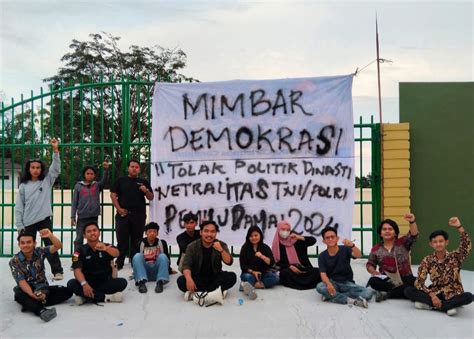 MIMBAR
DEMOKRASI
"TOLAK POLITIK DINASTI
NETRALITAS TNI/POLRI
PEMILU DAMAI 2024